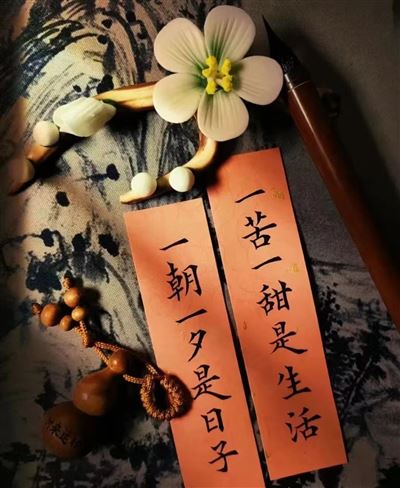 一苦一甜是生活
一朝一夕是日子